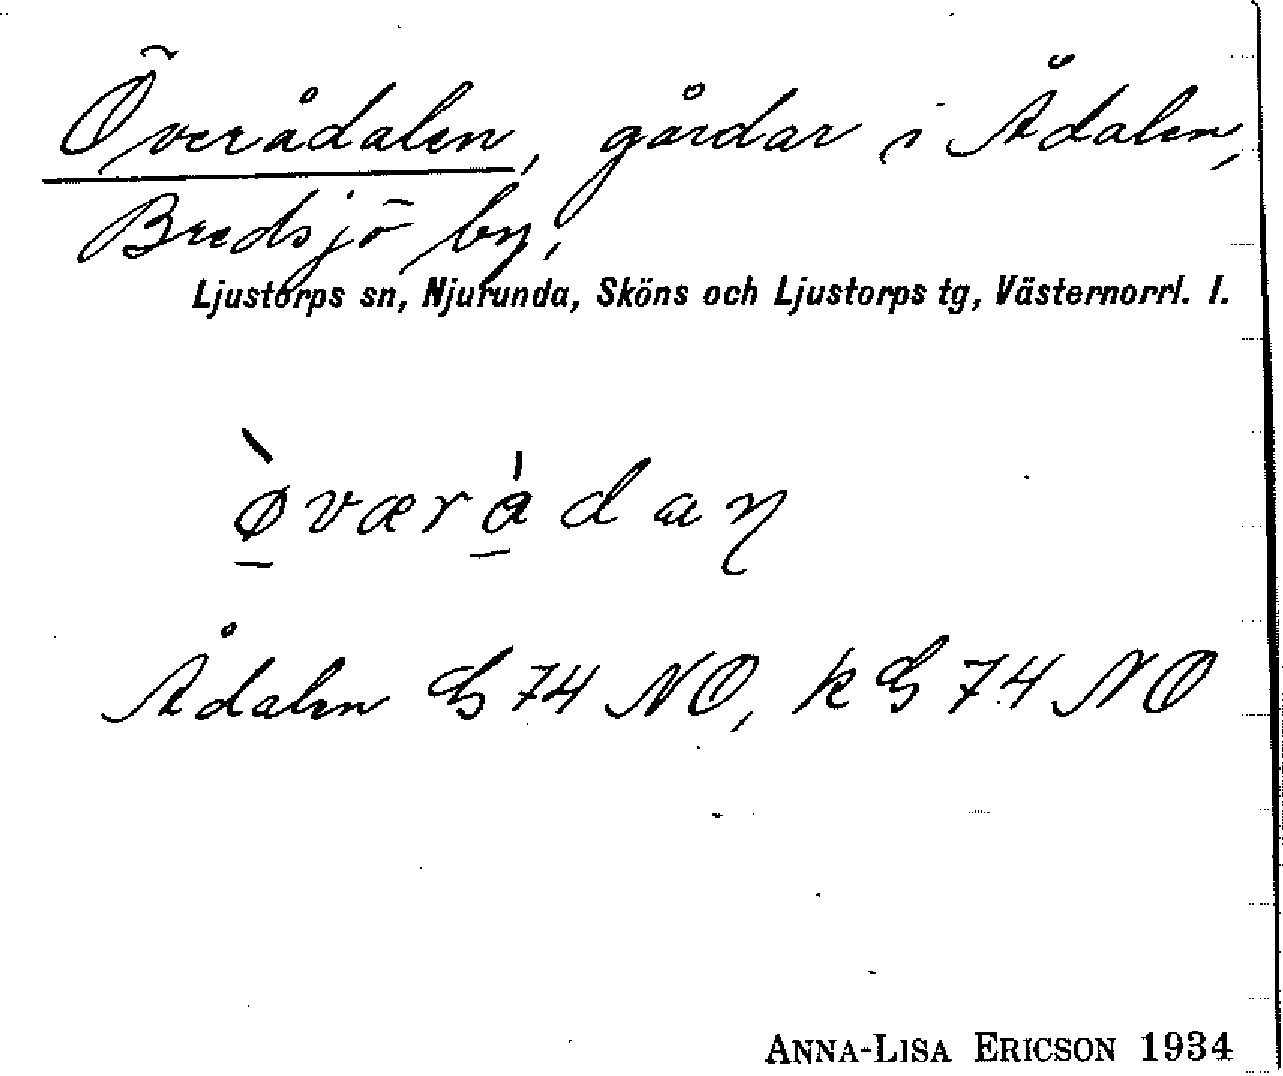 Överådalen, gårdar i Ådalen,
Bredsjö by,
Ljustorps sn, Njurunda, Sköns och Ljustorps tg, Västernorrl. l.
ø̀værådaŋ
Ådalen G 74 NO, k G 74 NO
ANNA-LISA ERICSON 1934